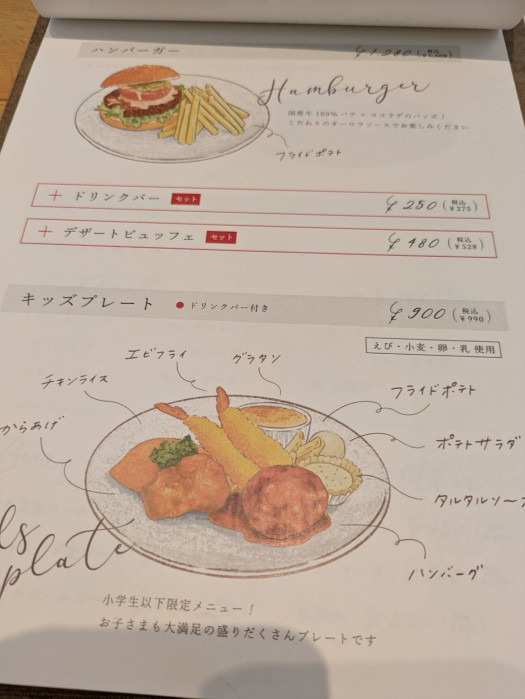 ハンバーガー ¥1,280 (税込
Hamburger
国産牛100%パテ×ココラデのバンズ!
こだわりのオーロラソースでお楽しみください
フライドポテト
+ ドリンクバー セット ¥250 (税込 ¥275)
+ デザートビュッフェ セット ¥480 (税込 ¥528)
キッズプレート ●ドリンクバー付き ¥900 (税込 ¥990)
えび・小麦・卵・乳 使用
エビフライ
グラタン
チキンライス
フライドポテト
からあげ
ポテトサラダ
タルタルソース
ハンバーグ
ls
plate
小学生以下限定メニュー!
お子さまも大満足の盛りだくさんプレートです